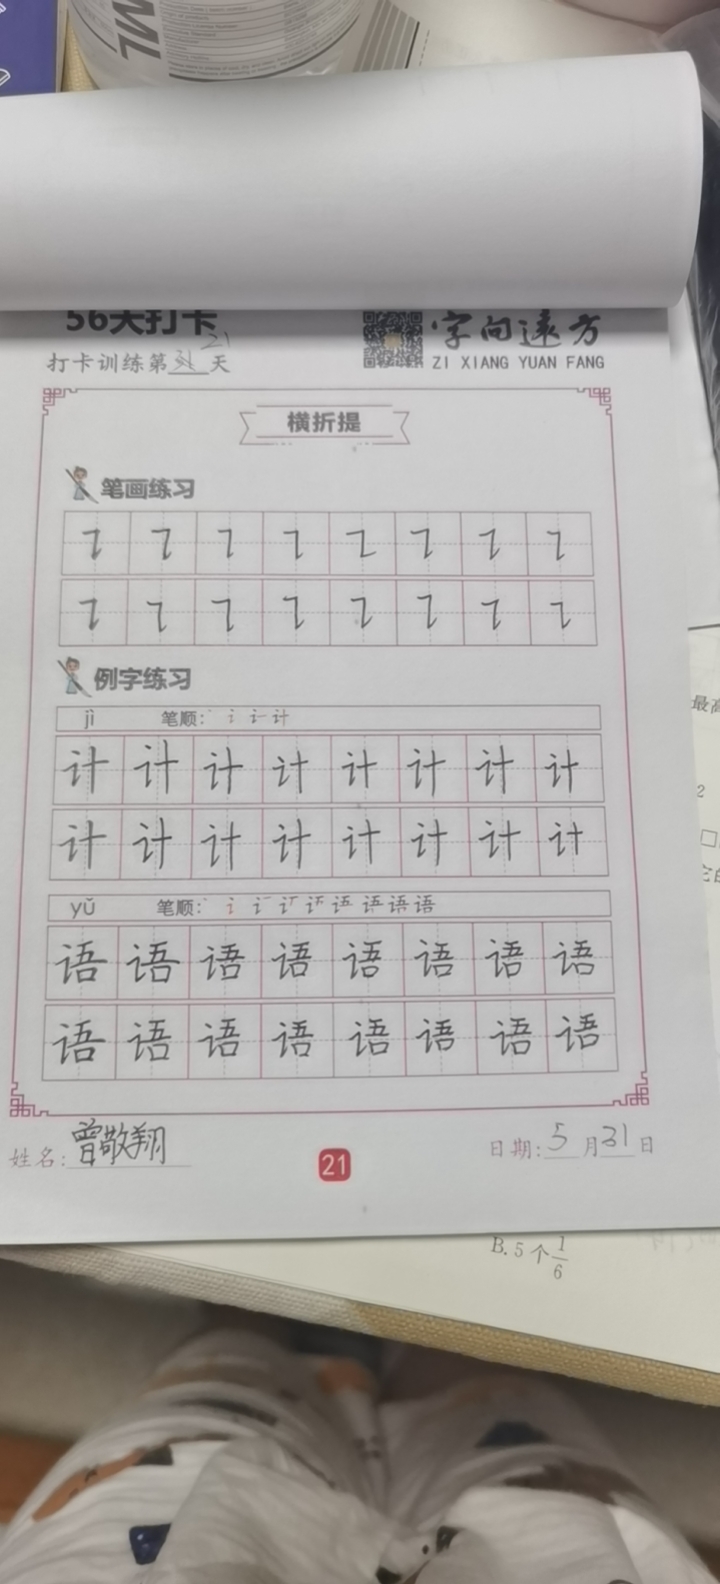 ML
56天打卡
字向远方
打卡训练第 21 天
ZI XIANG YUAN FANG
横折提
笔画练习
例字练习
jì 笔顺: 计
计 计 计 计 计 计 计 计
计 计 计 计 计 计 计 计
yǔ 笔顺: 语
语 语 语 语 语 语 语 语
语 语 语 语 语 语 语 语
姓名: 曾敬翔
21
日期: 5 月 31 日
B. 5个1/6
最高
2